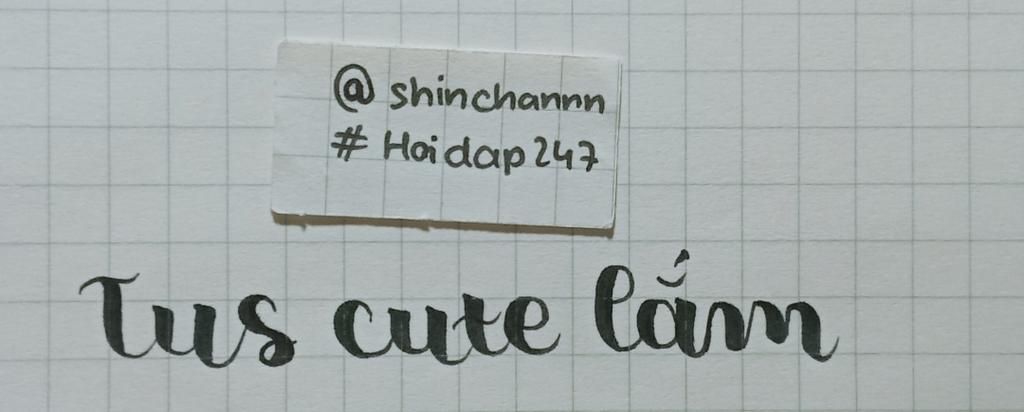 @ shinchannn
# Hoidap 247
Tus cute lắm